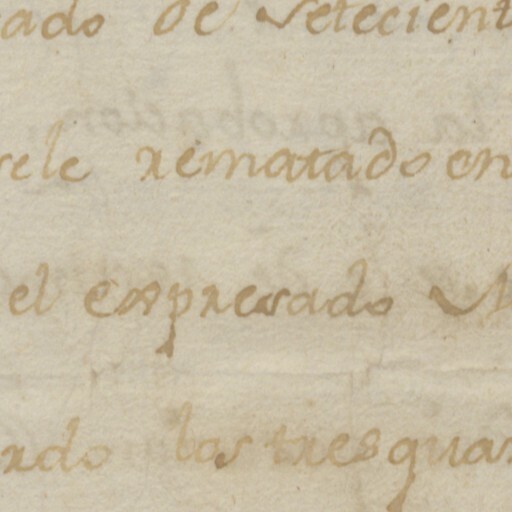 ado de setecient
sele rematado en
el expresado
rdo los tres quar